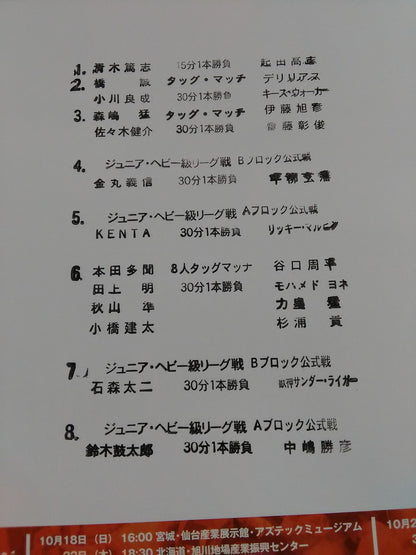 1. 青木篤志 15分1本勝負 起田高志
2. 橋 誠 タッグ・マッチ デリリアス
小川良成 30分1本勝負 キース・ウォーカー
3. 森嶋 猛 タッグ・マッチ 伊藤旭彦
佐々木健介 30分1本勝負 齋藤彰俊
4. ジュニア・ヘビー級リーグ戦 Bブロック公式戦
金丸義信 30分1本勝負
5. ジュニア・ヘビー級リーグ戦 Aブロック公式戦
KENTA 30分1本勝負 リッキー・マルビン
6. 本田多聞 8人タッグマッチ 谷口周平
田上 明 30分1本勝負 モハメド ヨネ
秋山 準 力皇 猛
小橋建太 杉浦 貴
7. ジュニア・ヘビー級リーグ戦 Bブロック公式戦
石森太二 30分1本勝負 獣神サンダー・ライガー
8. ジュニア・ヘビー級リーグ戦 Aブロック公式戦
鈴木鼓太郎 30分1本勝負 中嶋勝彦
10月18日（日）16:00 宮城・仙台産業展示館・アズテックミュージアム
22日（木）18:30 北海道・旭川地場産業振興センター